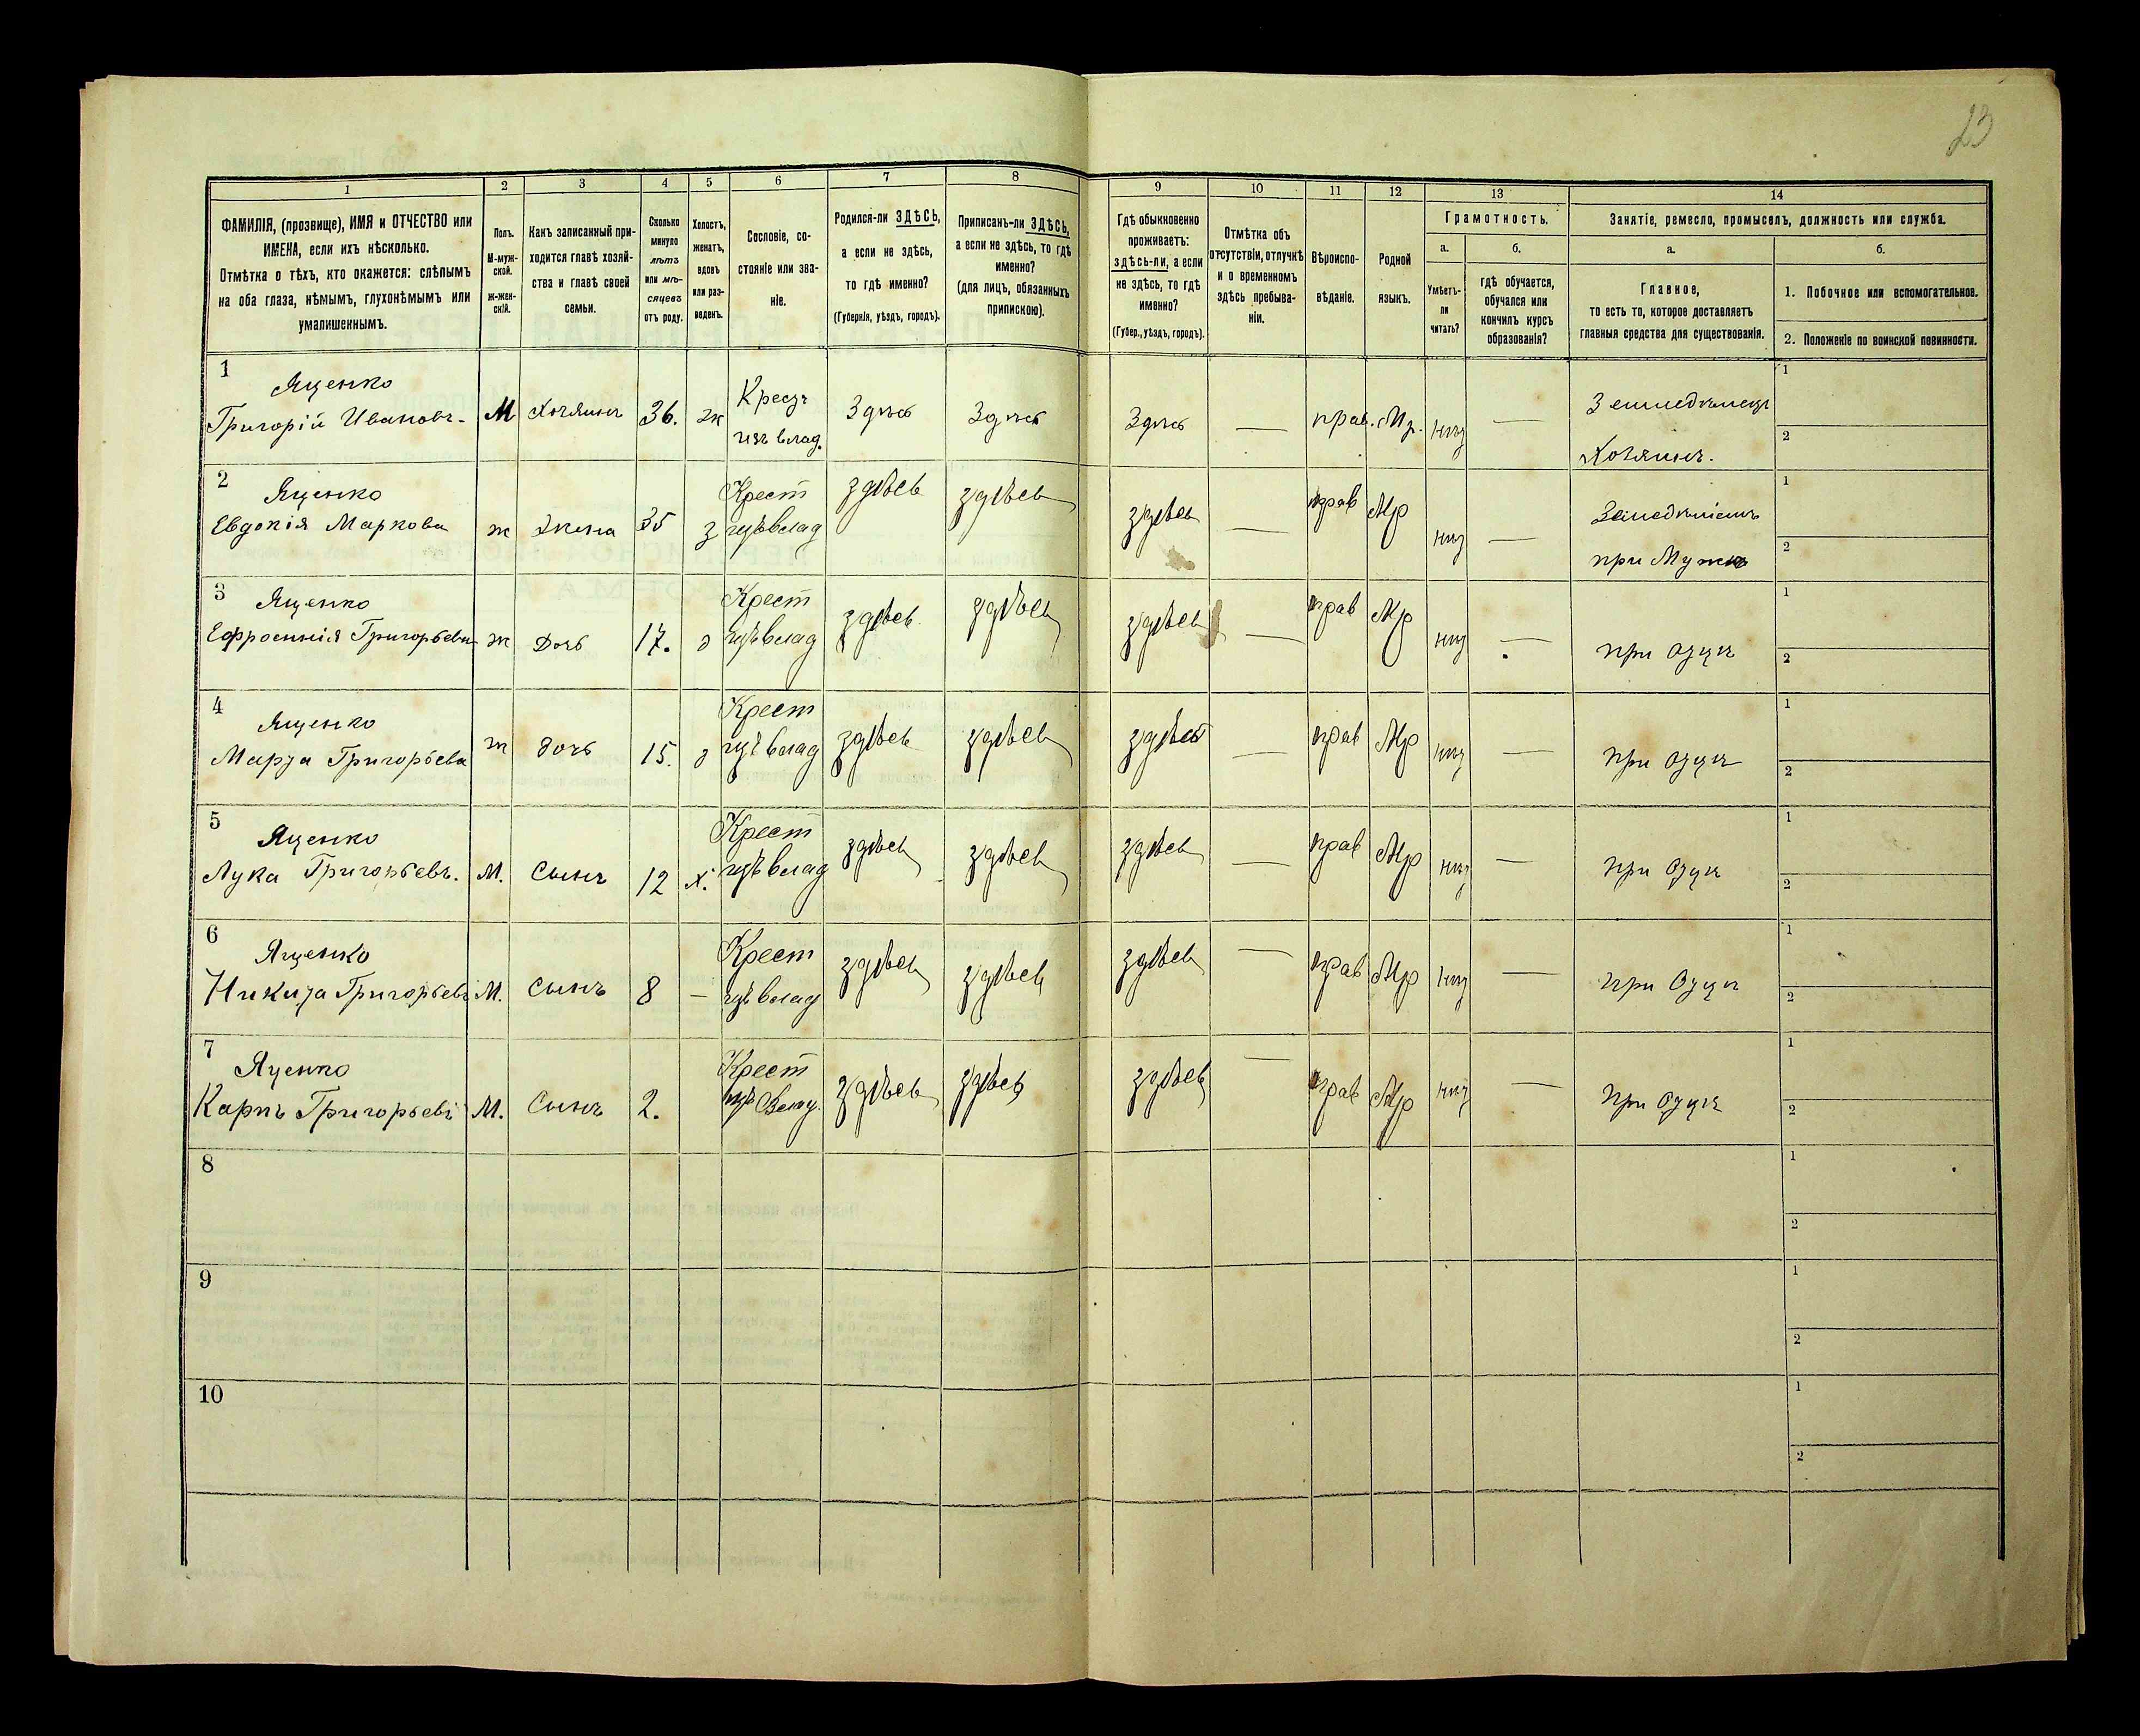 23
1 2 3 4 5 6 7 8 9 10 11 12 13 14
ФАМИЛІЯ, (прозвище), ИМЯ и ОТЧЕСТВО или
ИМЕНА, если ихъ нѣсколько.
Отмѣтка о тѣхъ, кто окажется: слѣпымъ
на оба глаза, нѣмымъ, глухонѣмымъ или
умалишеннымъ.
Полъ.
М-муж-
ской.
ж-жен-
скій.
Какъ записанный при-
ходится главѣ хозяй-
ства и главѣ своей
семьи.
Сколько
минуло
лѣтъ
или мѣ-
сяцевъ
отъ роду.
Холостъ,
женатъ,
вдовъ
или раз-
веденъ.
Сословіе, со-
стояніе или зва-
ніе.
Родился-ли ЗДѢСЬ,
а если не здѣсь,
то гдѣ именно?
(Губернія, уѣздъ, городъ).
Приписанъ-ли ЗДѢСЬ,
а если не здѣсь, то гдѣ
именно?
(для лицъ, обязанныхъ
припискою).
Гдѣ обыкновенно
проживаетъ:
здѣсь-ли, а если
не здѣсь, то гдѣ
именно?
(Губер., уѣздъ, городъ).
Отмѣтка объ
отсутствіи, отлучкѣ
и о временномъ
здѣсь пребыва-
ніи.
Вѣроиспо-
вѣданіе.
Родной
языкъ.
Грамотность.
а.
Умѣетъ-
ли
читать?
б.
гдѣ обучается,
обучался или
кончилъ курсъ
образованія?
Занятіе, ремесло, промыселъ, должность или служба.
а.
Главное,
то есть то, которое доставляетъ
главныя средства для существованія.
б.
1. Побочное или вспомогательное.
2. Положеніе по воинской повинности.
1
Яценко
Григорій Ивановъ - М Хозяинъ 36. ж Крест изъ влад. Здѣсь Здѣсь Здѣсь — прав. Мр. нѣт — Земледѣлецъ
Хозяинъ.
1
2
2
Яценко
Евдокія Маркова ж Жена 35 з Крест изъ влад здѣсь здѣсь здѣсь — прав Мр нѣт —
при Мужѣ
1
2
3
Яценко
Ефросинія Григорьева ж Дочь 17. д Крест изъ влад здѣсь здѣсь здѣсь — прав Мр нѣт — при Отцѣ
1
2
4
Яценко
Марта Григорьева ж дочь 15. д Крест изъ влад здѣсь здѣсь здѣсь — прав Мр нѣт — при Отцѣ
1
2
5
Яценко
Лука Григорьевъ. М. Сынъ 12 х. Крест изъ влад здѣсь здѣсь здѣсь — прав Мр нѣт — при Отцѣ
1
2
6
Яценко
Никита Григорьевъ М. Сынъ 8 — Крест изъ влад здѣсь здѣсь здѣсь — прав Мр нѣт — при Отцѣ
1
2
7
Яценко
Карпъ Григорьевъ М. Сынъ 2. Крест изъ Влад. здѣсь здѣсь здѣсь — прав Мр нѣт — при Отцѣ
1
2
8
1
2
9
1
2
10
1
2